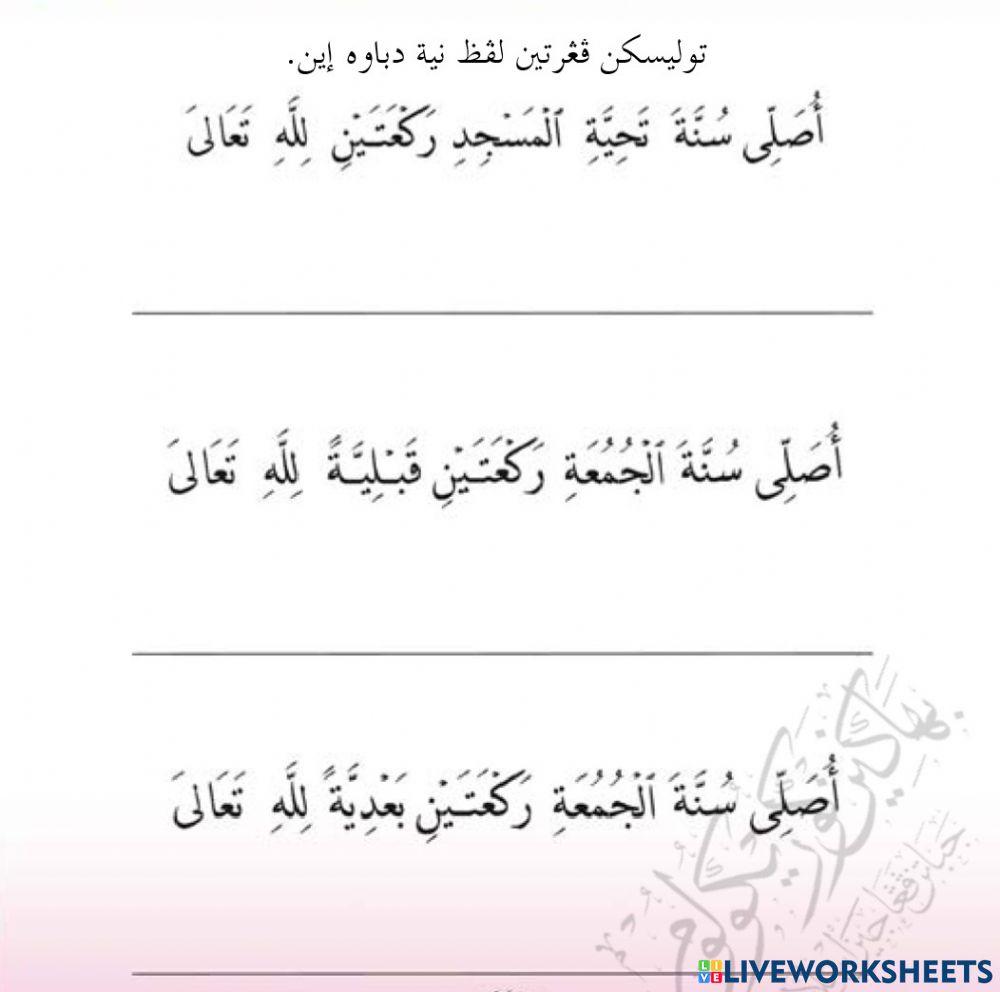 توليسکن ڤڠرتين لفظ نية دباوه إين.
أُصَلِّى سُنَّةَ تَحِيَّةِ ٱلْمَسْجِدِ رَكْعَتَيْنِ لِلَّهِ تَعَالىَ
أُصَلِّى سُنَّةَ ٱلْجُمُعَةِ رَكْعَتَيْنِ قَبْلِيَّةً لِلَّهِ تَعَالىَ
أُصَلِّى سُنَّةَ ٱلْجُمُعَةِ رَكْعَتَيْنِ بَعْدِيَّةً لِلَّهِ تَعَالىَ
LIVE LIVEWORKSHEETS